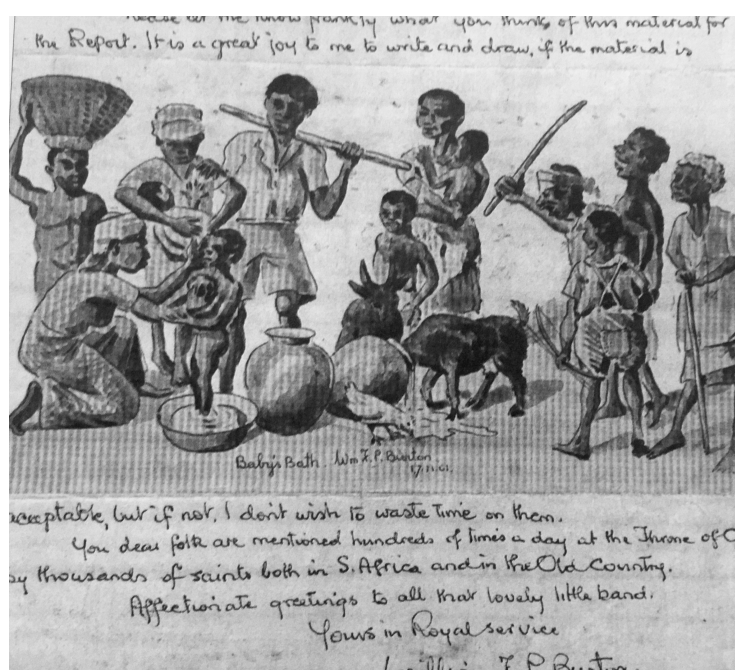 Please let me know frankly what you think of this material for
the Report. It is a great joy to me to write and draw, if the material is
Baby's Bath. Wm F. P. Burton.
17.11.61.
acceptable, but if not, I don't wish to waste time on them.
You dear folk are mentioned hundreds of times a day at the Throne of
by thousands of saints both in S. Africa and in the Old Country.
Affectionate greetings to all that lovely little band.
Yours in Royal service
Willie F. P. Burton.